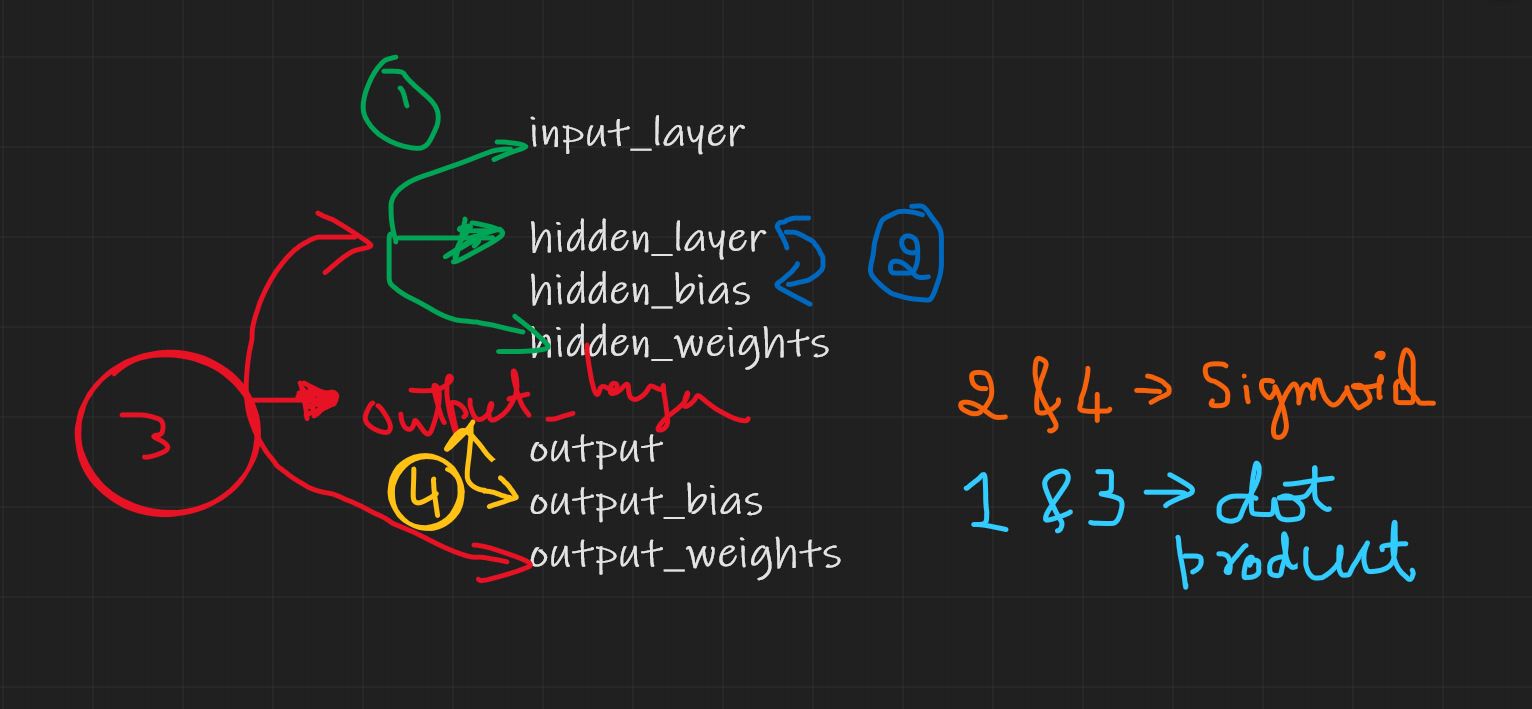 1
input_layer
hidden_layer
2
hidden_bias
hidden_weights
3
output_layer
output
4
output_bias
output_weights
2 & 4 → Sigmoid
1 & 3 → dot
product